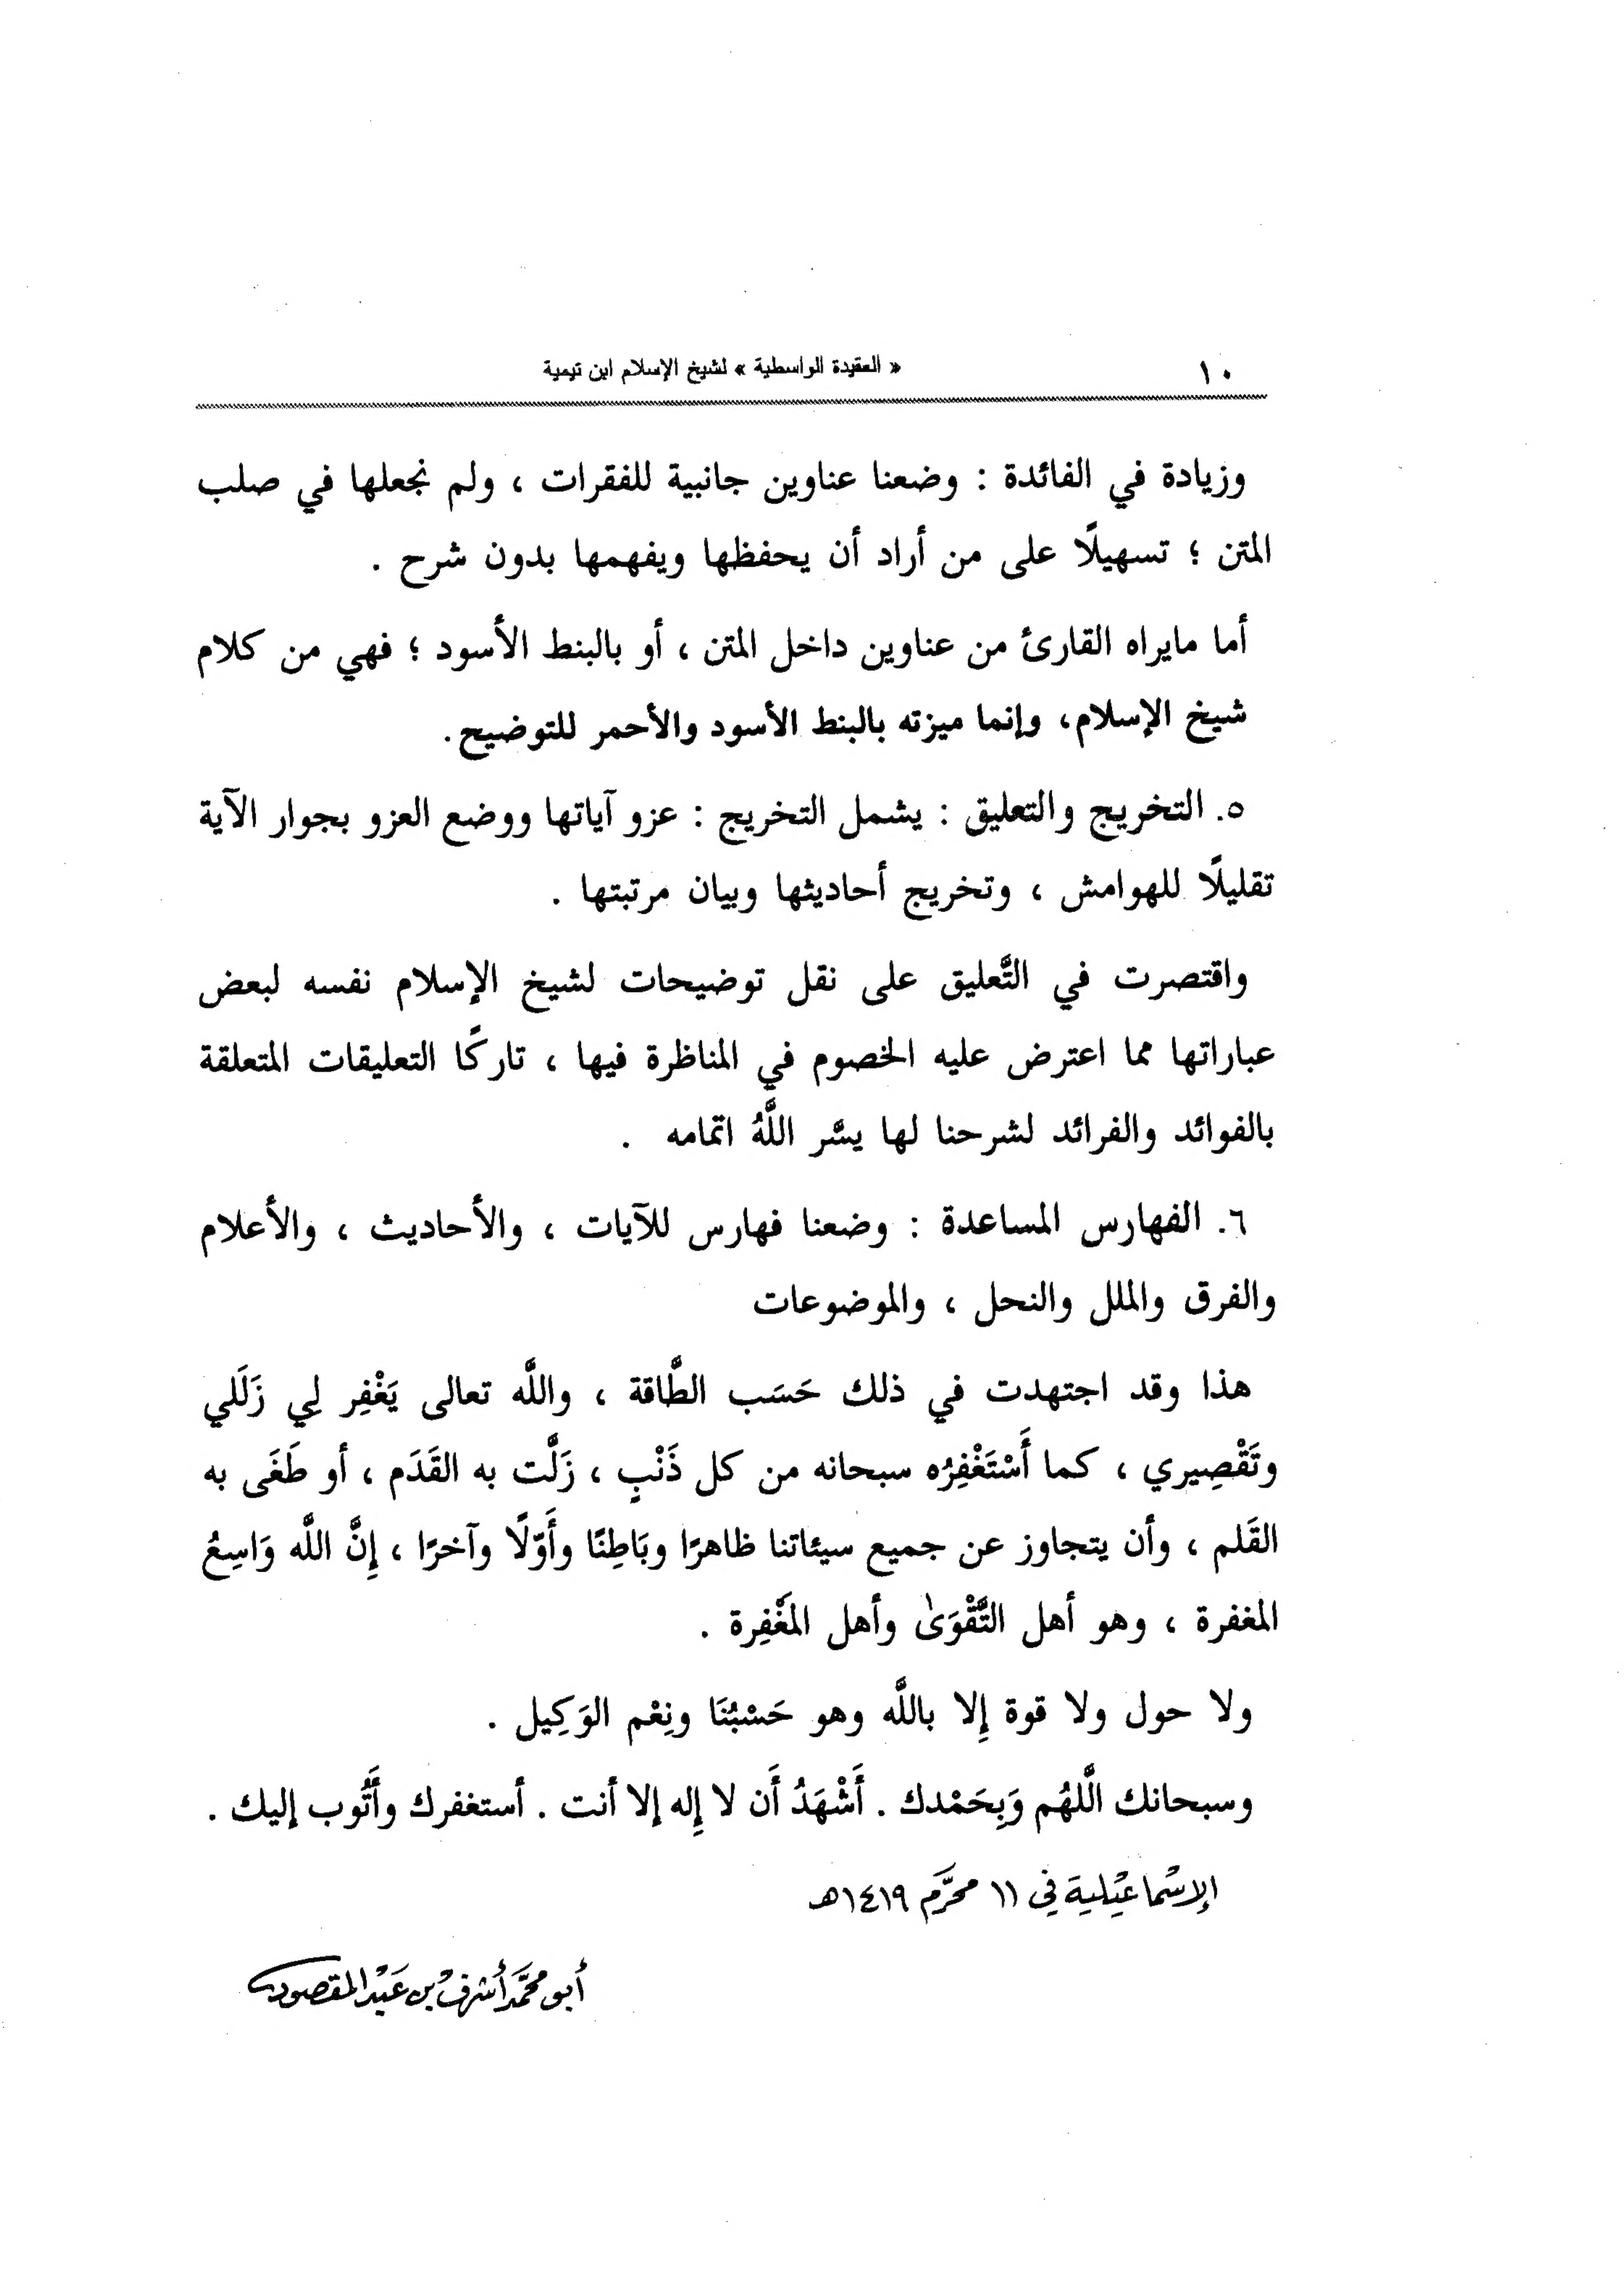 ١٠
« العقيدة الواسطية » لشيخ الإسلام ابن تيمية
وزيادة في الفائدة : وضعنا عناوين جانبية للفقرات ، ولم نجعلها في صلب
المتن ؛ تسهيلًا على من أراد أن يحفظها ويفهمها بدون شرح .
أما مايراه القارئ من عناوين داخل المتن ، أو بالبنط الأسود ؛ فهي من كلام
شيخ الإسلام، وإنما ميزته بالبنط الأسود والأحمر للتوضيح.
٥. التخريج والتعليق : يشمل التخريج : عزو آياتها ووضع العزو بجوار الآية
تقليلًا للهوامش ، وتخريج أحاديثها وبيان مرتبتها .
واقتصرت في التَّعليق على نقل توضيحات لشيخ الإسلام نفسه لبعض
عباراتها مما اعترض عليه الخصوم في المناظرة فيها ، تاركًا التعليقات المتعلقة
بالفوائد والفرائد لشرحنا لها يسَّر اللَّهُ اتمامه .
٦. الفهارس المساعدة : وضعنا فهارس للآيات ، والأحاديث ، والأعلام
والفرق والملل والنحل ، والموضوعات
هذا وقد اجتهدت في ذلك حَسَب الطَّاقة ، واللَّه تعالى يَغْفِر لِي زَلَلي
وتَقْصِيري ، كما أَسْتَغْفِرُه سبحانه من كل ذَنْبٍ ، زَلَّت به القَدَم ، أو طَغَى به
القَلم ، وأن يتجاوز عن جميع سيئاتنا ظاهرًا وبَاطِنًا وأَوّلًا وآخرًا ، إِنَّ اللَّه وَاسِعُ
المغفرة ، وهو أهل التَّقْوَىٰ وأهل المَغْفِرة .
ولا حول ولا قوة إِلا باللَّه وهو حَسْبُنَا ونِعْم الوَكِيل .
وسبحانك الَّلهُم وَبِحَمْدك . أَشْهَدُ أَن لا إِله إلا أنت . أستغفرك وأَتُوب إليك .
الإسْماعيْلية في ١١ محرَّم ١٤١٩هـ
أبو محمَّد أشرف بن عَبْد المقصود